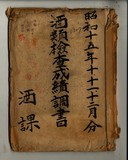 昭和十五年十一十二月分
酒類檢查成績調書
酒課